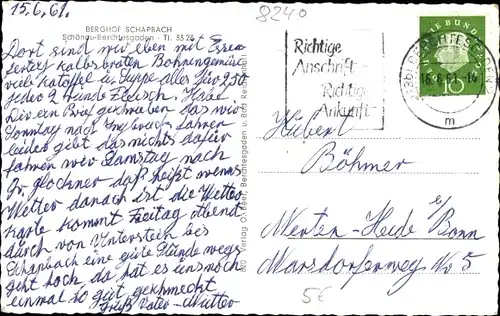 15.6.61.
BERGHOF SCHAPBACH
Schönau-Berchtesgaden - Tl. 3326
Dort sind wir eben mit Essen
fertig kalbsbraten Bohnengemüse
viele Katoffel u Suppe alles für 2,50
jeder 2 Hunde Fleisch. Habe
Dir ein Brief geschrieben das wir
Sonntag nach fahren
leider gibt das nichts dafür
fahren wir Samstag nach
Gr glochner daß heißt wenns
Wetter danach ist die Wetter
karte kommt Freitag Abend
durch von Untersteih bis
Schapbach eine gute Stunde wegs
geht hoch, da hat es uns noch
einmal so gut geschmeckt
Gruß Vater - Mutter
8240
Richtige
Anschrift -
Richtige
Ankunft
BERCHTESGADEN
16.6.61.-14
m
10
Hubert
Böhmer
Merten-Heide b/ Bonn
Marsdorferweg Nr 5
5€